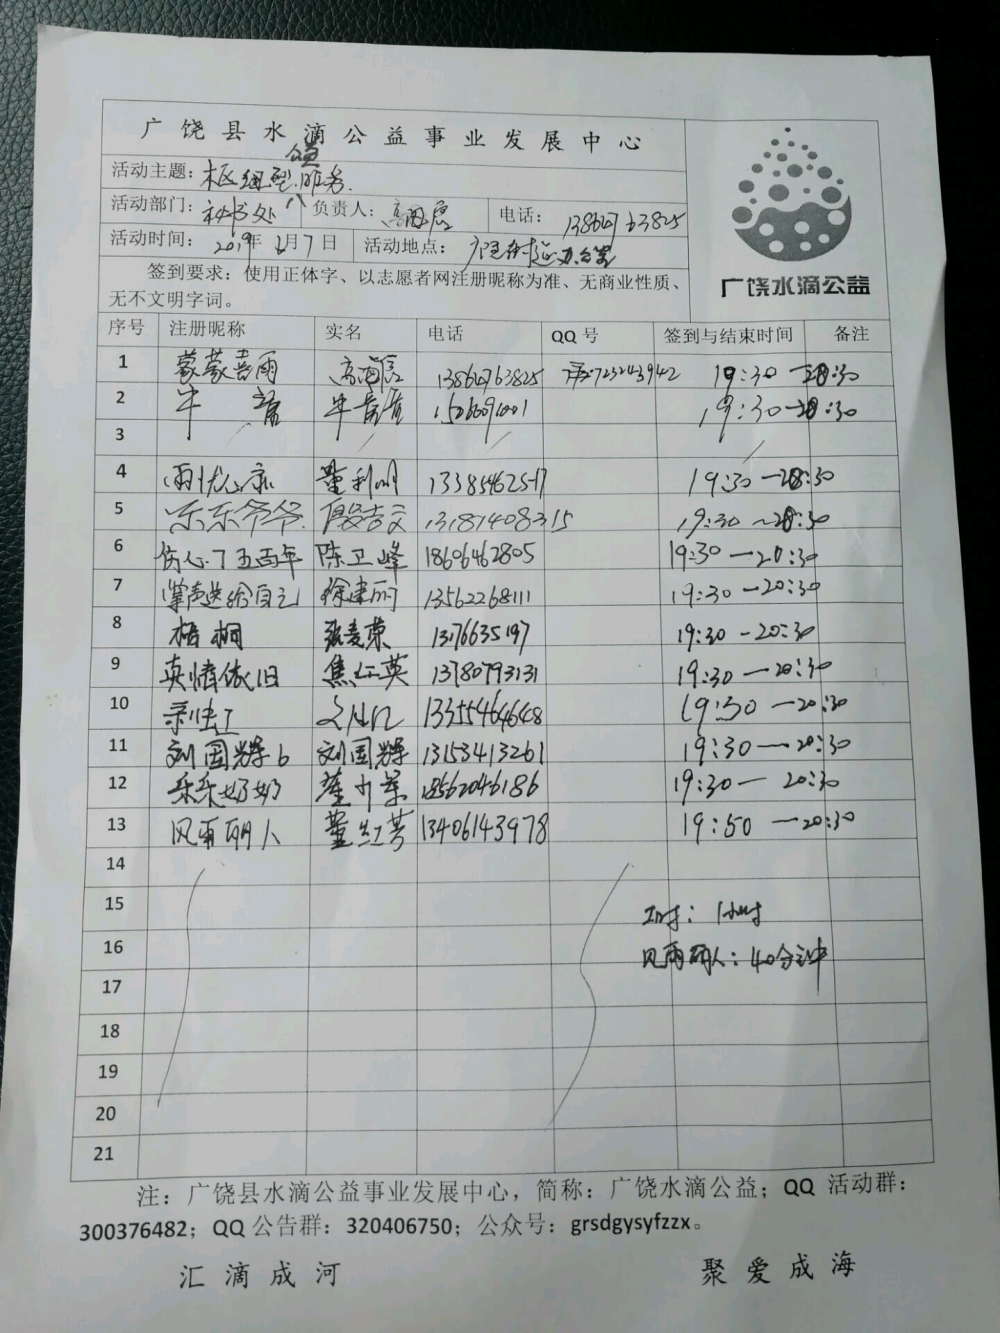 广饶县水滴公益事业发展中心
活动主题：枢纽型 服务
活动部门：秘书处 负责人： 电话：13864763825
活动时间：2019年 月7日 活动地点：
签到要求：使用正体字、以志愿者网注册昵称为准、无商业性质、
无不文明字词。
广饶水滴公益
序号 注册昵称 实名 电话 QQ号 签到与结束时间 备注
1 蒙蒙喜雨 13864763825 723243942 19:30 —20:30
2 牛 19:30—20:30
3
4 董利明 13385462517 19:30—20:30
5 乐乐爷爷 13181408315 19:30 —20:30
6 伤心了五百年 陈卫峰 18606462805 19:30 —20:30
7 掌声送给自己 徐建丽 13562268111 19:30 —20:30
8 梧桐 19:30 —20:30
9 真情依旧 焦红英 13780793131 19:30 —20:30
10 13355464648 19:30 —20:30
11 刘国辉6 刘国辉 13153413261 19:30 —20:30
12 乐乐奶奶 18562046186 19:30— 20:30
13 风雨丽人 董红芳 13406143978 19:50 —20:30
14
15 工时：1小时
16 风雨丽人：40分钟
17
18
19
20
21
注：广饶县水滴公益事业发展中心，简称：广饶水滴公益；QQ 活动群：
300376482；QQ 公告群：320406750；公众号：grsdgysyfzzx。
汇滴成河 聚爱成海